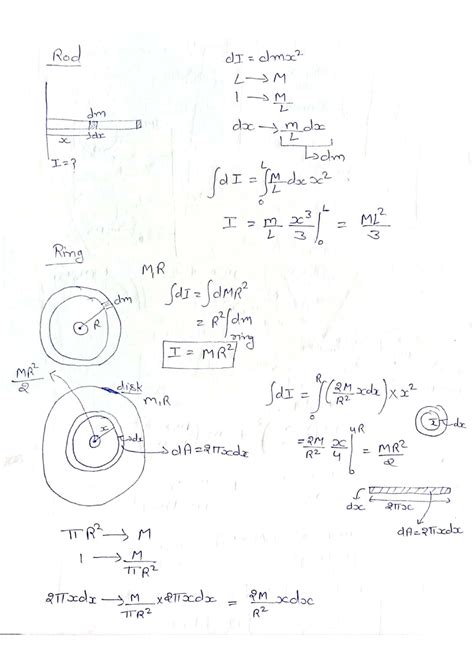 Rod
dI = dmx²
L → M
1 → M/L
dx → m/L dx
→ dm
dm
x
dx
I = ?
∫dI = ∫₀ᴸ M/L dx x²
I = m/L x³/3 |₀ᴸ = ML²/3
Ring
MR
dm
R
∫dI = ∫dMR²
= R² ∫dm
ring
I = MR²
MR²/2
disk
M,R
x
dx
dA = 2πxdx
∫dI = ∫₀ᴿ (2M/R² xdx) × x²
= 2M/R² x⁴/4 |₀ᴿ = MR²/2
x
dx
dx
2πx
dA = 2πxdx
πR² → M
1 → M/πR²
2πxdx → M/πR² × 2πxdx = 2M/R² xdx